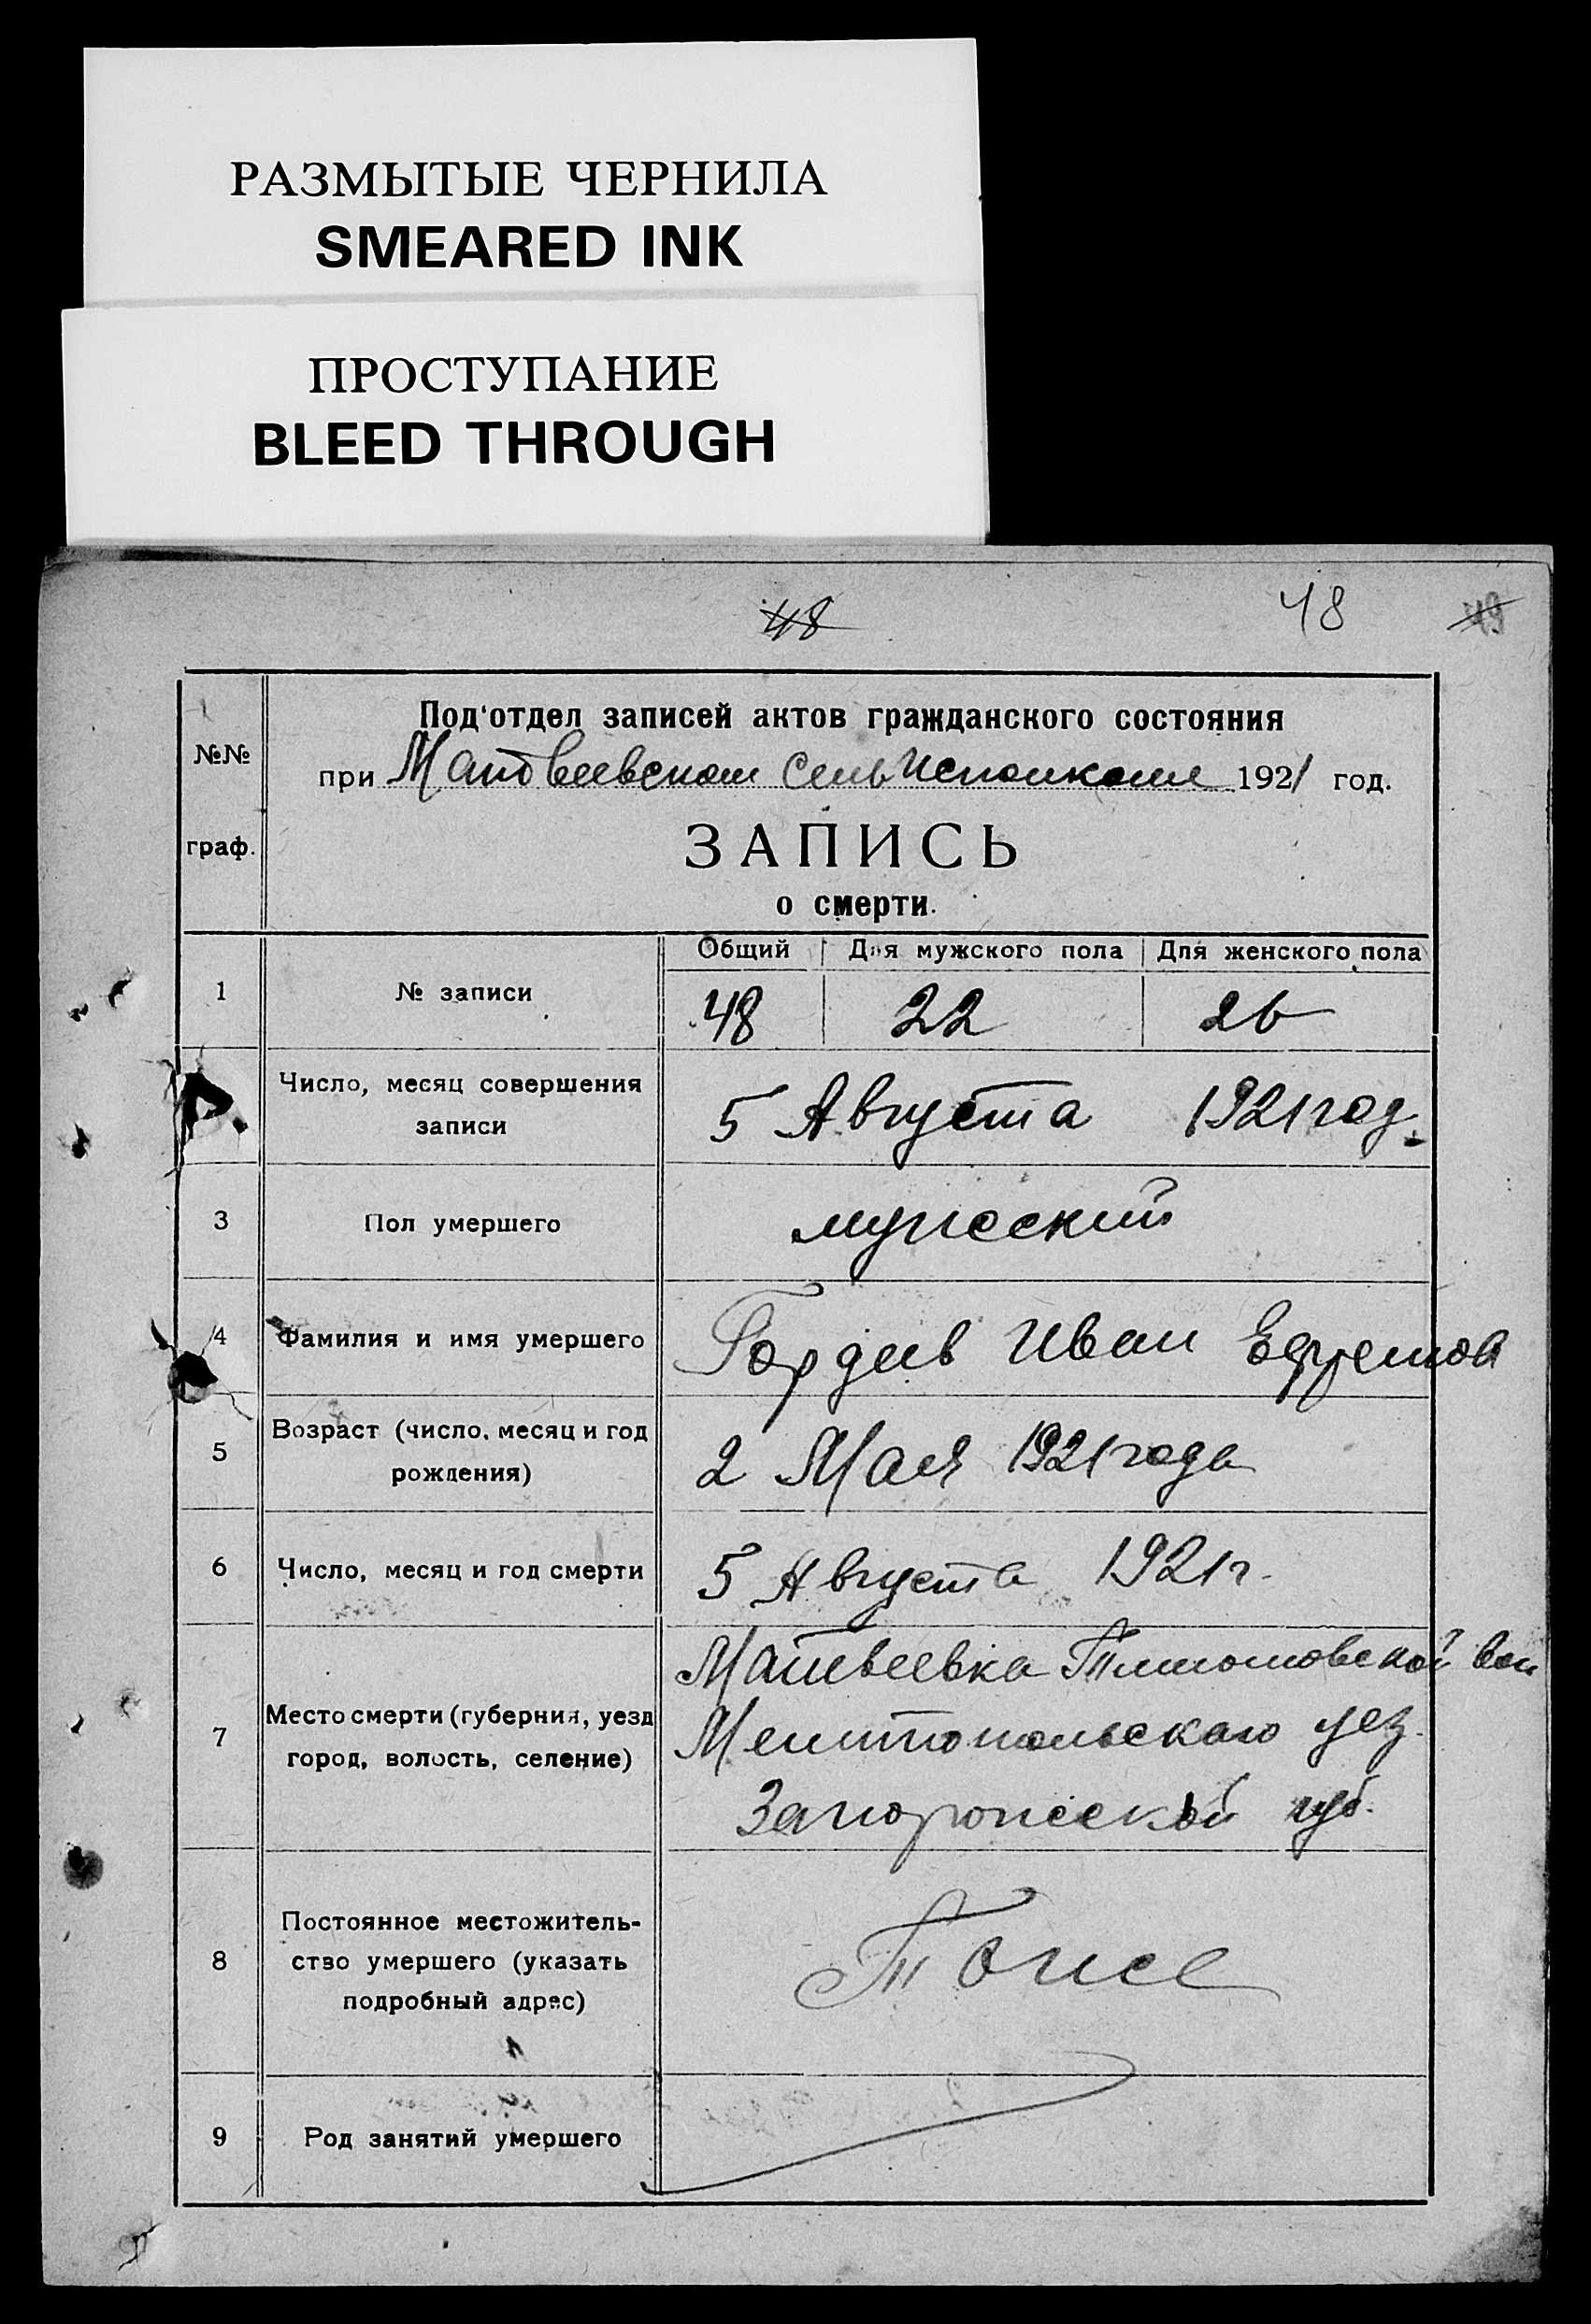 РАЗМЫТЫЕ ЧЕРНИЛА
SMEARED INK
ПРОСТУПАНИЕ
BLEED THROUGH
48 48 49
Под'отдел записей актов гражданского состояния
№№
при Матвеевском СельИсполкоме 1921 год.
граф.
ЗАПИСЬ
о смерти.
Общий Для мужского пола Для женского пола
1 № записи 48 22 26
Число, месяц совершения
записи
5 Августа 1921 год.
3 Пол умершего мужеский
4 Фамилия и имя умершего Гордеев Иван Ефремов
5 Возраст (число, месяц и год
рождения)
2 Мая 1921 года
6 Число, месяц и год смерти 5 Августа 1921 г.
7 Место смерти (губерния, уезд
город, волость, селение)
Матвеевка Тимошовской вол
Мелитопольскаго уез.
Запорожеской губ.
8 Постоянное местожитель-
ство умершего (указать
подробный адрес)
Тоже
9 Род занятий умершего